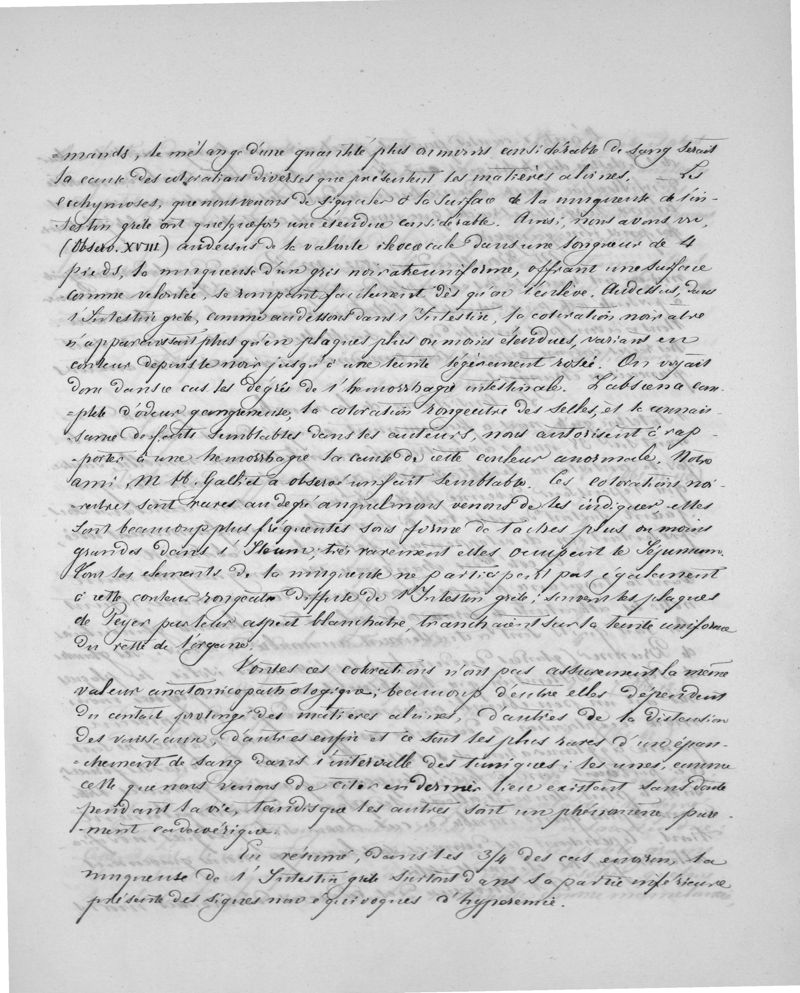 -mands, le mélange d'une quantité plus ou moins considérable de sang serait
la cause des colorations diverses que présentent les matières alvines. — Les
ecchymoses, que nous venons de signaler à la surface de la muqueuse de l'in-
testin grêle ont quelquefois une étendue considérable. Ainsi, nous avons vu,
(Observ. XVIII) au dessus de la valvule iléocœcale dans une longueur de 4
pieds, la muqueuse d'un gris noirâtre uniforme, offrant une surface
comme veloutée, se rompant facilement dès qu'on l'enlève. Au dessus, dans
l'Intestin grêle, comme au dessous dans l'Intestin, la coloration noirâtre
n'apparaissait plus qu'en plaques plus ou moins étendues, variant en
couleur depuis le noir jusqu'à une teinte légèrement rosée. On voyait
donc dans ce cas les degrés de l'hémorrhagie intestinale. L'absence com-
-plète d'odeur gangréneuse, la coloration rougeâtre des selles, et la connais-
sance de faits semblables dans les auteurs, nous autorisent à rap-
-porter à une hémorrhagie la cause de cette couleur anormale. Notre
ami, M. H. Galliet a observé un fait semblable. Les colorations noi-
râtres sont rares au degré auquel nous venons de les indiquer elles
sont beaucoup plus fréquentes sous forme de taches plus ou moins
grandes dans l'Iléum; très rarement elles occupent le Jéjunum.
Tous les éléments de la muqueuse ne participent pas également
à cette couleur rougeâtre diffuse de l'Intestin grêle; souvent les plaques
de Peyer par leur aspect blanchâtre, tranchaient sur la teinte uniforme
du reste de l'organe.
Toutes ces colorations n'ont pas assurément la même
valeur anatomico pathologique; beaucoup d'entre elles dépendent
du contact prolongé des matières alvines, d'autres de la distension
des vaisseaux, d'autres enfin et ce sont les plus rares d'un épan-
-chement de sang dans l'intervalle des tuniques; les unes, comme
celle que nous venons de citer en dernier lieu existent sans doute
pendant la vie, tandis que les autres sont un phénomène pure-
ment cadavérique.
En résumé, dans les 3/4 des cas environ, la
muqueuse de l'Intestin grêle surtout dans sa partie inférieure
présente des signes non équivoques d'hyperémie.